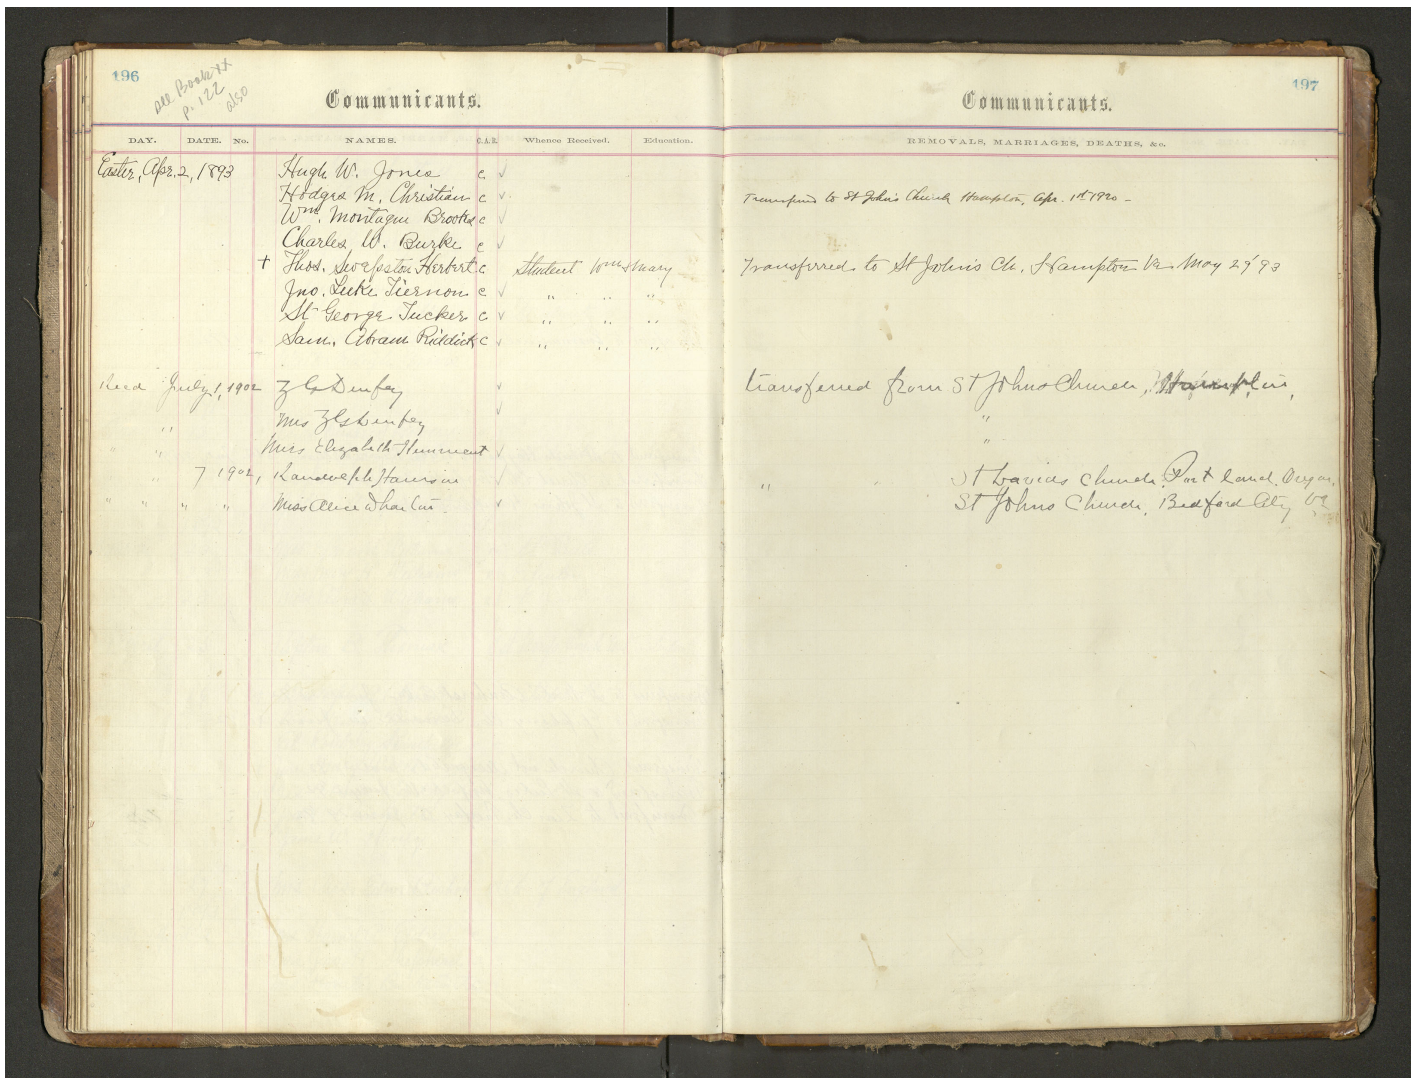 196
see Book XX
p. 122
also
Communicants.
DAY. DATE. No. NAMES. C.A.R. Whence Received. Education.
Easter, Apr. 2, 1893 Hugh W. Jones c ✓
Hodges M. Christian c ✓
Wm. Montague Brooks c ✓
Charles W. Burke c ✓
+ Thos. Swepston Herbert c Student Wm & Mary
Jno. Luke Tiernon c ✓ " " "
St George Tucker c ✓ " " "
Sam. Abram Riddick c ✓ " " "
Recd July 1, 1902 ✓
" Mrs ✓
" " Miss Elizabeth ✓
" 7 1902, Randolph Harrison ✓
" " " " Miss Alice Wharton ✓
197
Communicants.
REMOVALS, MARRIAGES, DEATHS, &c.
Transferred to St John's Church Hampton, Apr. 1st 1920 -
Transferred to St John's Ch. Hampton Va May 29' 93
transferred from St Johns Church, Hampton,
"
"
" St Davids Church, Portland, Oregon.
St Johns Church, Bedford City Va